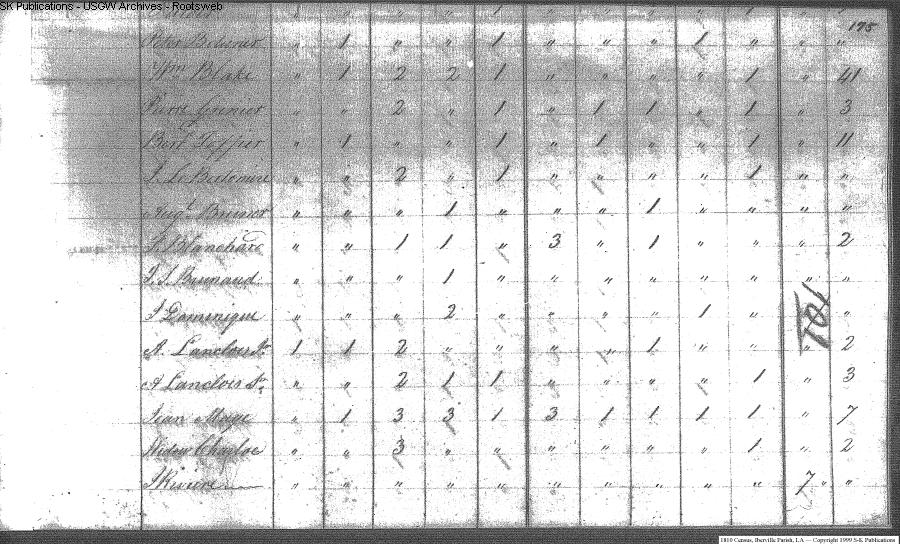 SK Publications - USGW Archives - Rootsweb
175
Peter " 1 " " 1 " " " 1 " " "
Wm Blake " 1 2 2 1 " " " " 1 " 41
Pierre " " 2 " 1 " 1 1 " 1 " 3
" 1 " " 1 " 1 " " 1 " 11
J. " " 2 " 1 " " " " 1 " "
Augt. " " " 1 " " " 1 " " " "
J. Blanchard " " 1 1 " 3 " 1 " " " 2
J. S. " " " 1 " " " " " " " "
J Dominique " " " 2 " " " " 1 " " "
181
A. Lanclois Jr. 1 1 2 " " " " 1 " " " 2
A Lanclois Sr. " " 2 1 1 " " " " 1 " 3
Jean " 1 3 3 1 3 1 1 1 1 " 7
Widow " " 3 " " " " " " 1 " 2
J Riviere " " " " " " " " " " 7 " "
1810 Census, Iberville Parish, LA — Copyright 1999 S-K Publications